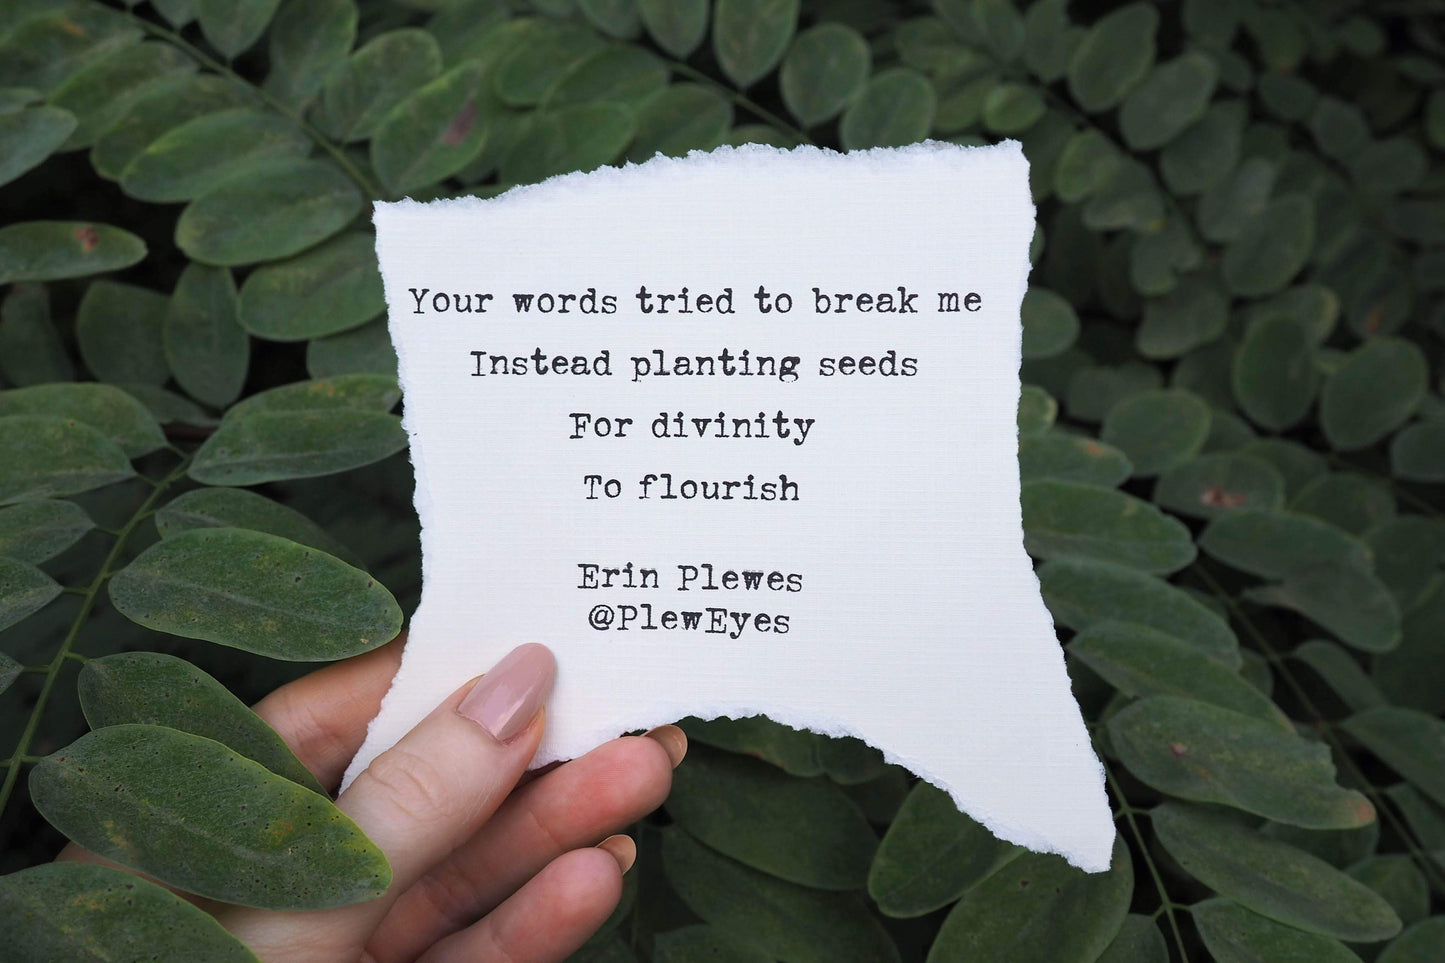 Your words tried to break me
Instead planting seeds
For divinity
To flourish
Erin Plewes
@PlewEyes